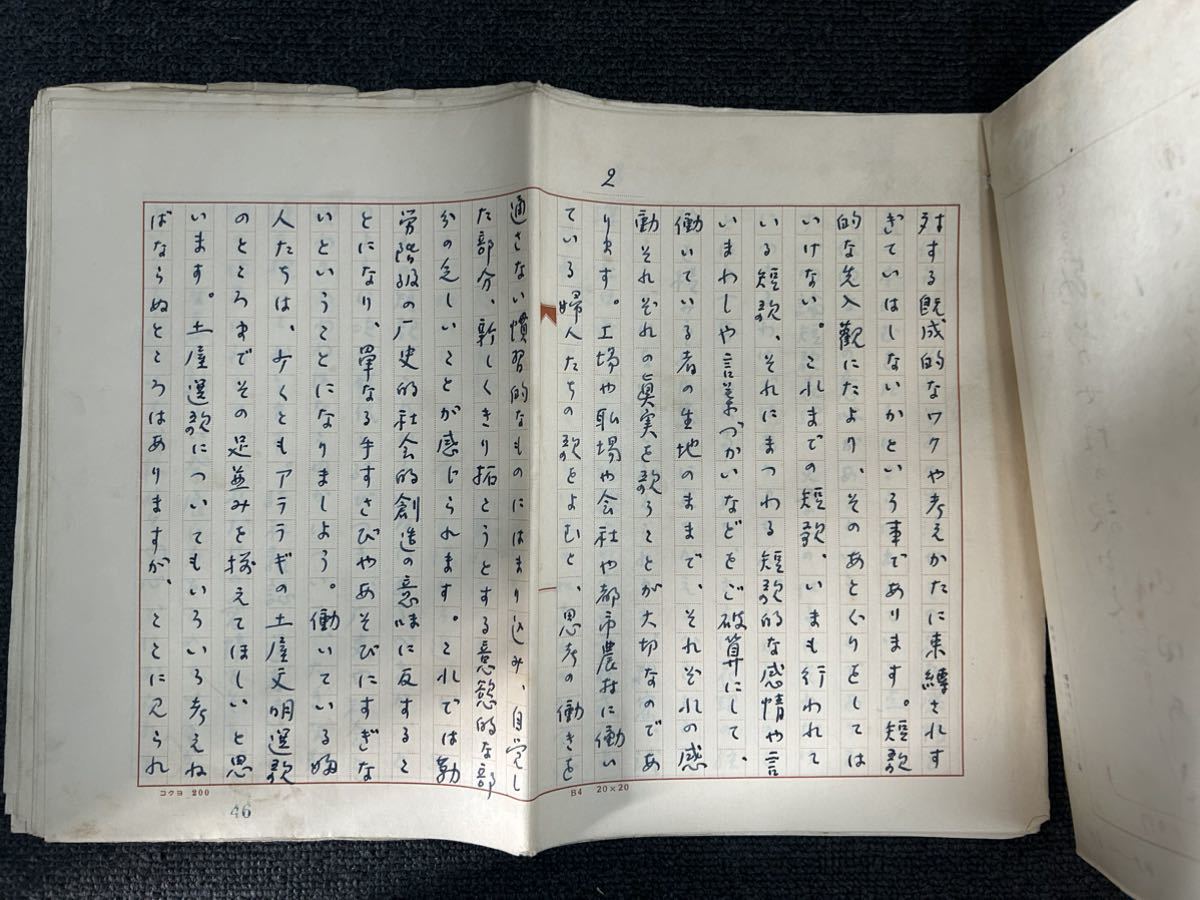 2
対する既成的なワクや考えかたに束縛されす
ぎていはしないかという事であります。短歌
的な先入観にたより、そのあとぐりをしては
いけない。これまでの短歌、いまも行われて
いる短歌、それにまつわる短歌的な感情や言
いまわしや言葉づかいなどをご破算にして、
働いている者の生地のままで、それぞれの感
動それぞれの眞実を歌うことが大切なのであ
ります。工場や職場や会社や都市農村に働い
ている婦人たちの歌をよむと、思考の働きを
通さない慣習的なものにはまり込み、自覚し
た部分、新しくきり拓こうとする意慾的な部
分の乏しいことが感じられます。これでは勤
労階級の歴史的社会的創造の意味に反するこ
とになり、單なる手すさびやあそびにすぎな
いということになりましよう。働いている婦
人たちは、少くともアララギの土屋文明選歌
のところまでその足並みを揃えてほしいと思
います。土屋選歌についてもいろいろ考えね
ばならぬところはありますが、ここに見られ
コクヨ 200
B4 20×20
46